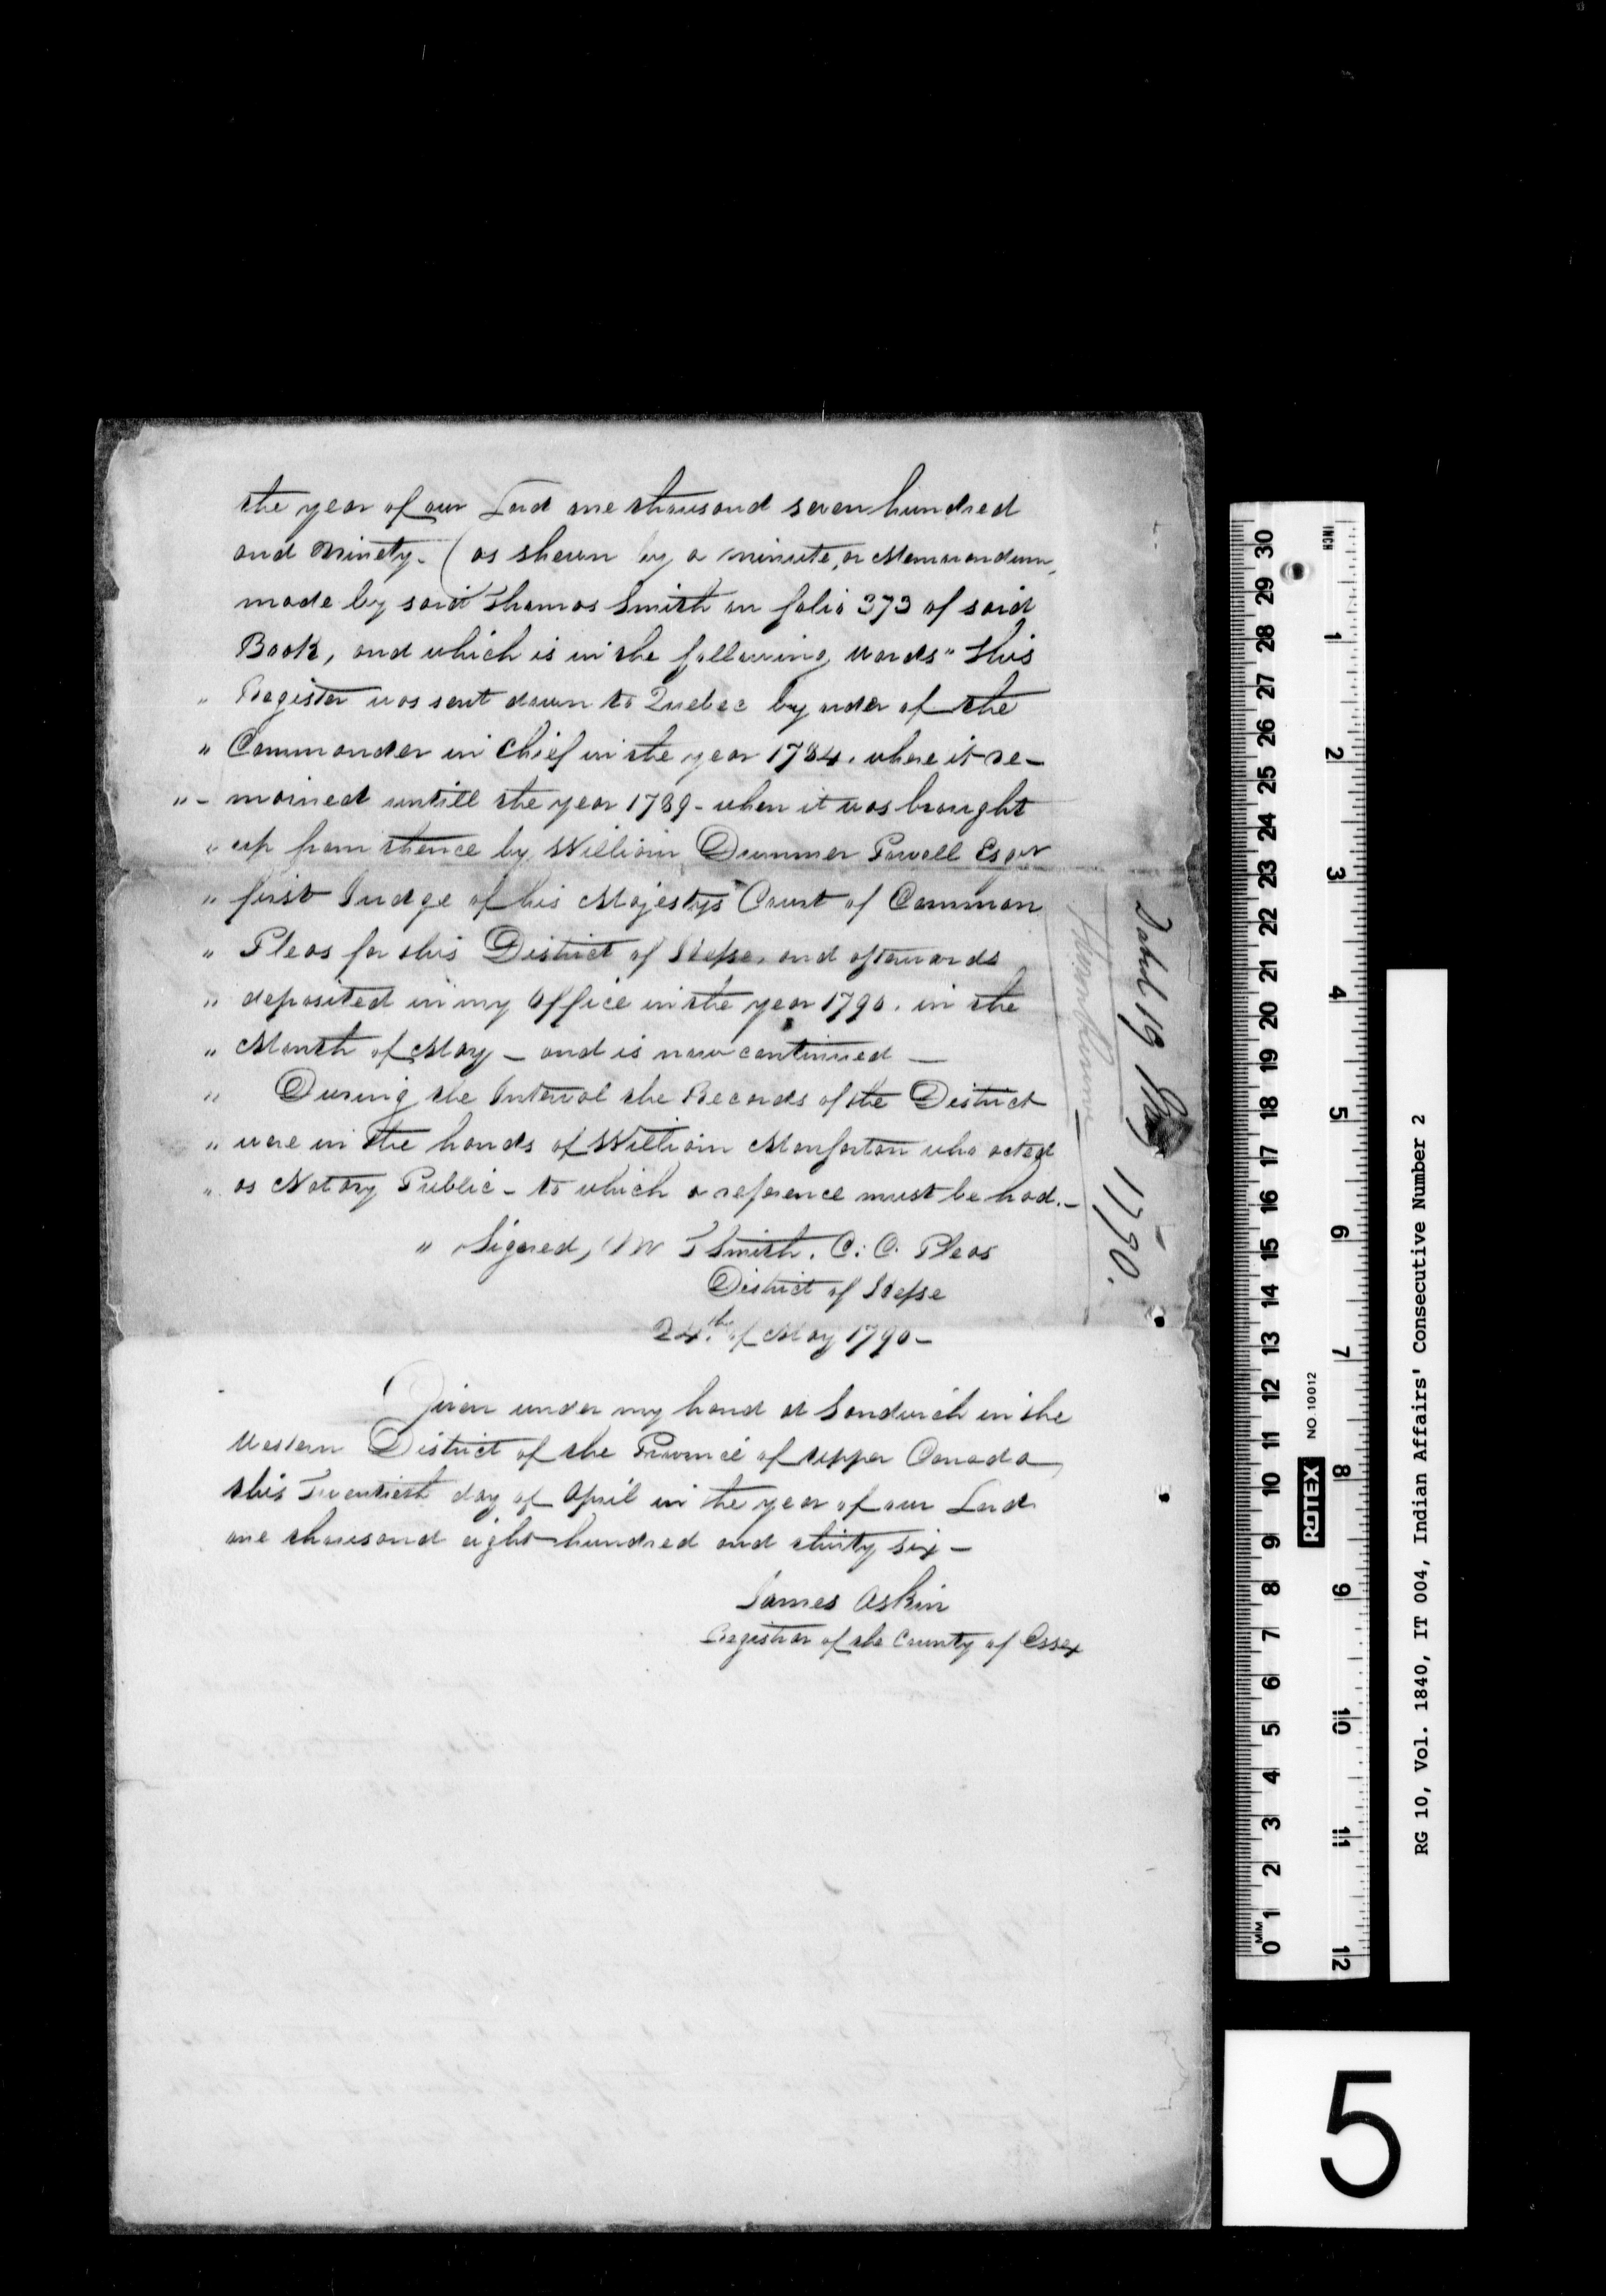 the year of our Lord one thousand seven hundred
and Ninety. ( as shewn by a minute, or Memorandum,
made by said Thomas Smith on folio 373 of said
Book, and which is in the following words " This
" Register was sent down to Quebec by order of the
" Commander in Chief in the year 1784. where it re-
" - mained untill the year 1789 - when it was brought
" up from thence by William Dummer Powell Esqr
" first Judge of his Majestys Court of Common
" Pleas for this District of Hesse, and afterwards
" deposited in my Office in the year 1790. in the
" Month of May - and is now continued -
" During the Interval the Records of the District
" were in the hands of William Monforton who acted
" as Notary Public - to which a reference must be had. -
" Signed, T Smith. C: C. Pleas
District of Hesse
24th. of May 1790 -
Given under my hand at Sandwich in the
Western District of the Province of upper Canada,
this Twentieth day of April in the year of our Lord
one thousand eight hundred and thirty six -
James Askin
Registrar of the County of Essex
Dated 19 May 1790.
INCH
1 2 3 4 5 6 7 8 9 10 11 12
30 29 28 27 26 25 24 23 22 21 20 19 18 17 16 15 14 13 12 11 10 9 8 7 6 5 4 3 2 1 0
MM
ROTEX NO 10012
RG 10, Vol. 1840, IT 004, Indian Affairs' Consecutive Number 2
5